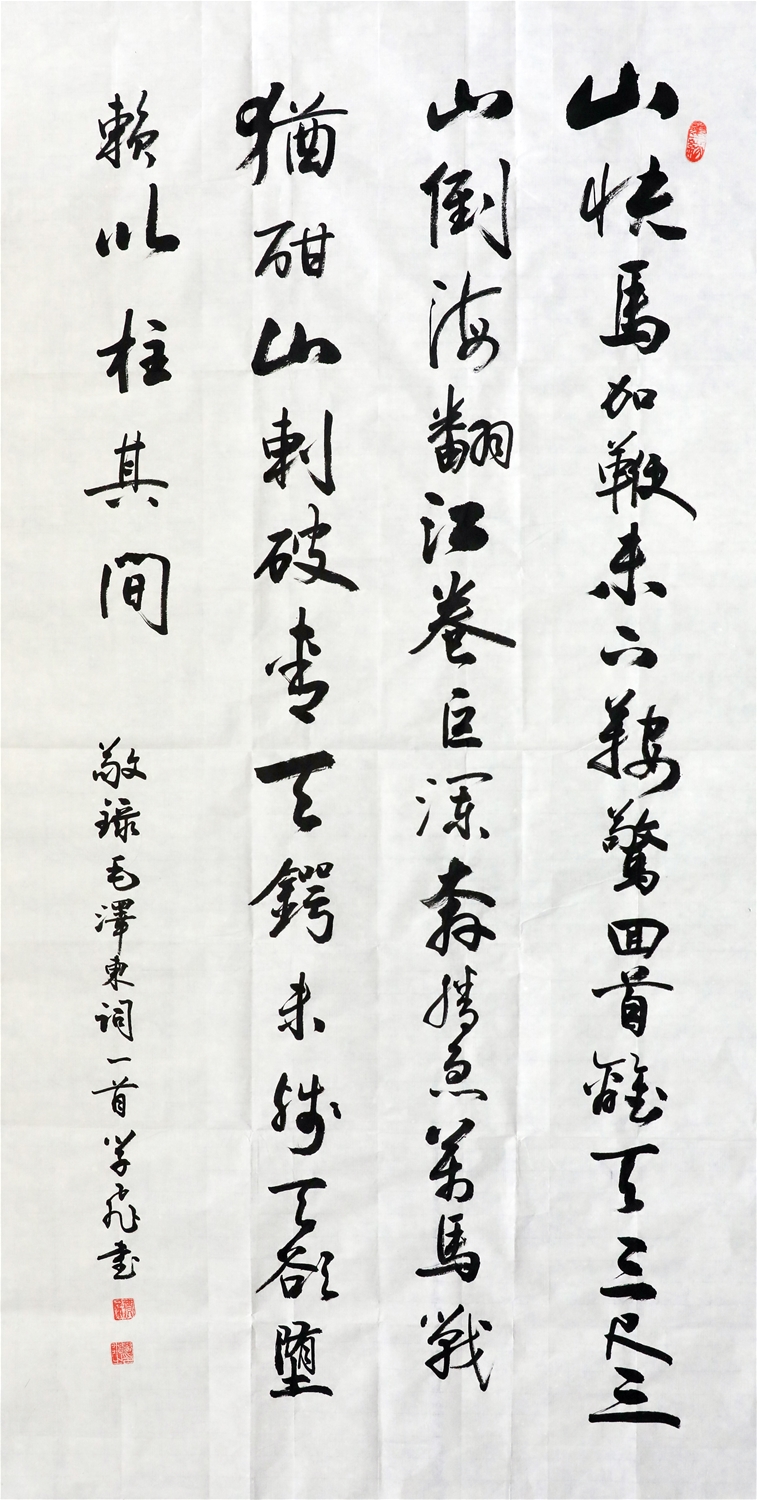 山快馬加鞭未下鞍驚回首離天三尺三
山倒海翻江卷巨瀾奔騰急萬馬戰
猶酣山刺破青天鍔未殘天欲墮
賴以柱其間
敬錄毛澤東詞一首学飛書